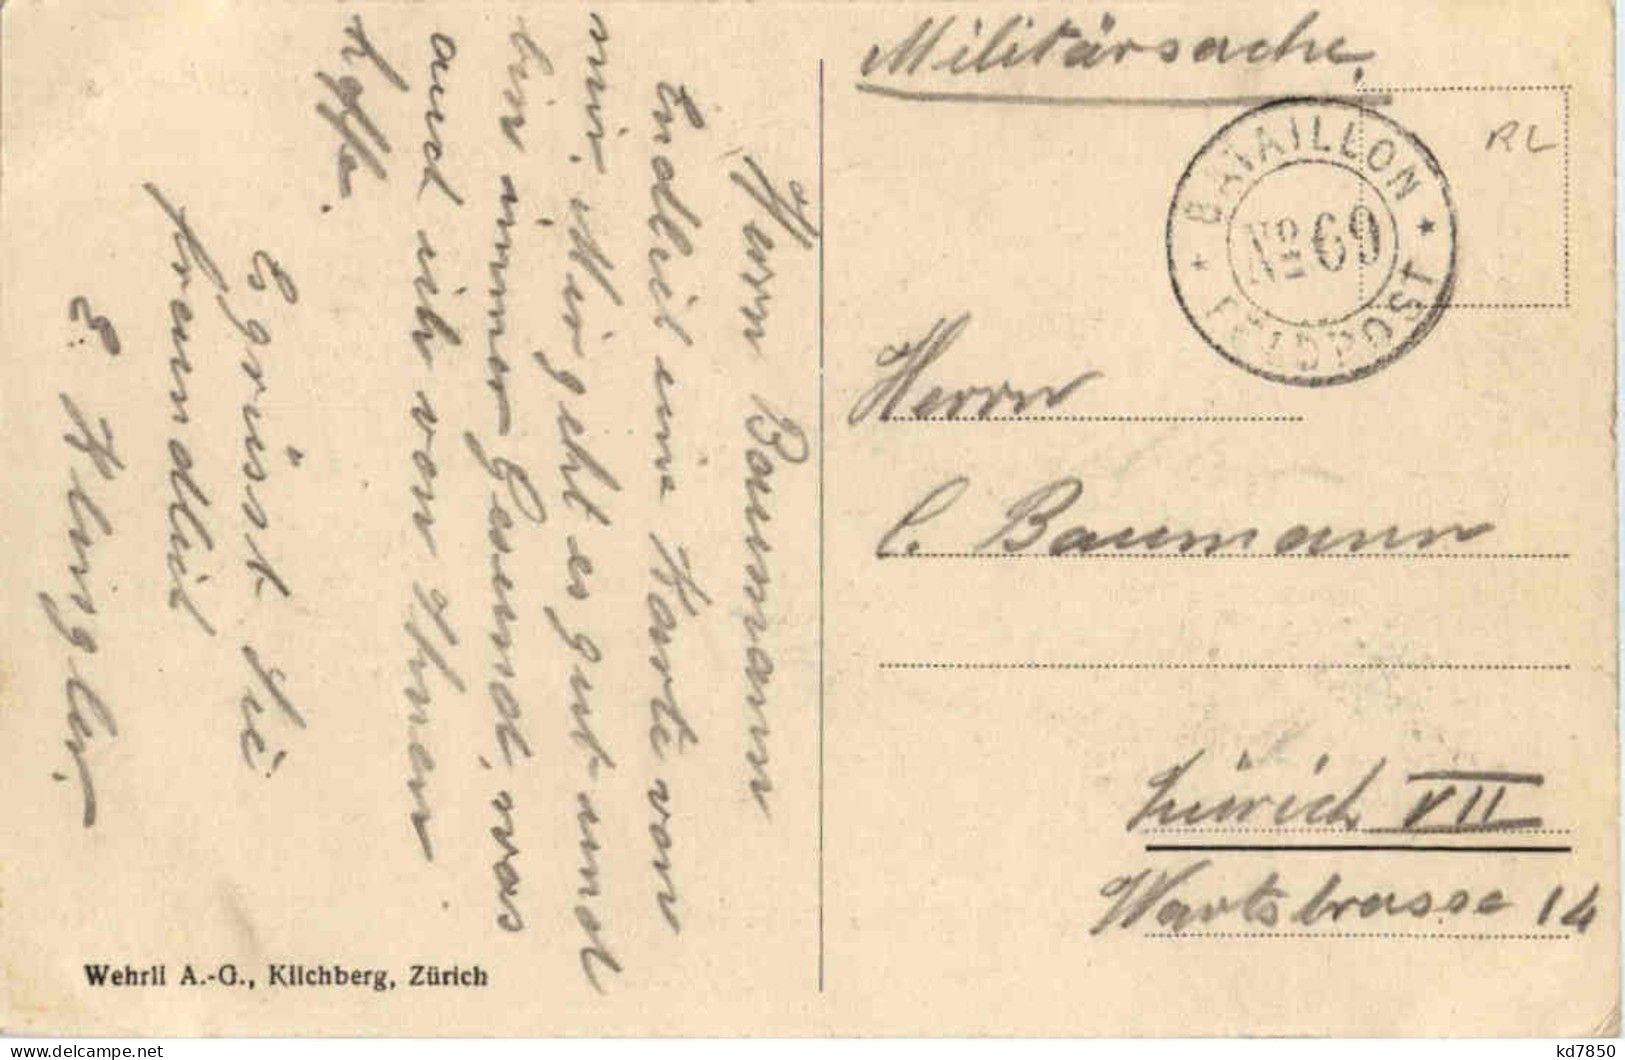 Herrn Baumann
Endlich eine Karte von
mir. Mir geht es gut und
bin immer Gesund, was
auch ich von Ihnen
hoffe.
Es grüsst Sie
freundlich
E. Klingler.
Wehrli A.-G., Kilchberg, Zürich
Militärsache.
RL
BATAILLON
No 69
FELDPOST
Herrn
C. Baumann
Zürich VII
Wartstrasse 14
kd7850